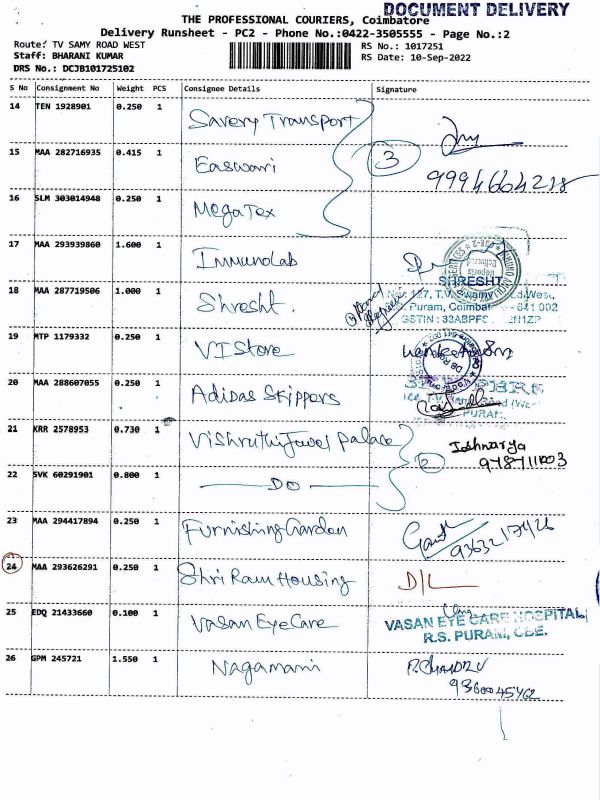 DOCUMENT DELIVERY
THE PROFESSIONAL COURIERS, Coimbatore
Delivery Runsheet - PC2 - Phone No.:0422-3505555 - Page No.:2
Route: TV SAMY ROAD WEST
Staff: BHARANI KUMAR
DRS No.: DCJB101725102
RS No.: 1017251
RS Date: 10-Sep-2022
S No Consignment No Weight PCS Consignee Details Signature
14 TEN 1928901 0.250 1 Savery Transport
15 MAA 282716935 0.415 1 Easwari 3
9994664218
16 SLM 303014948 0.250 1 MegaTex
17 MAA 293939860 1.600 1 ImmunoLab
SHRESHT
18 MAA 287719506 1.000 1 Shresht
No. 127, T.V. Swamy Rd, West,
Puram, Coimbat - 641 002
GSTIN : 33ABPFS 1ZP
19 MTP 1179332 0.250 1 VI Store
20 MAA 288607055 0.250 1 Adidas Skippers
PURAM,
21 KRR 2578953 0.730 1 Vishruthi Jewel Palace 2 Ishwarya
9787111003
22 SVK 60291901 0.800 1 DO
23 MAA 294417894 0.250 1 Furnishing Garden
9363217426
24 MAA 293626291 0.250 1 Shri Ram Housing D/L
25 EDQ 21433660 0.100 1 Vasan Eye Care
VASAN EYE CARE HOSPITAL
R.S. PURAM, CBE.
26 GPM 245721 1.550 1 Nagamani P. CHANDRU
9360045762